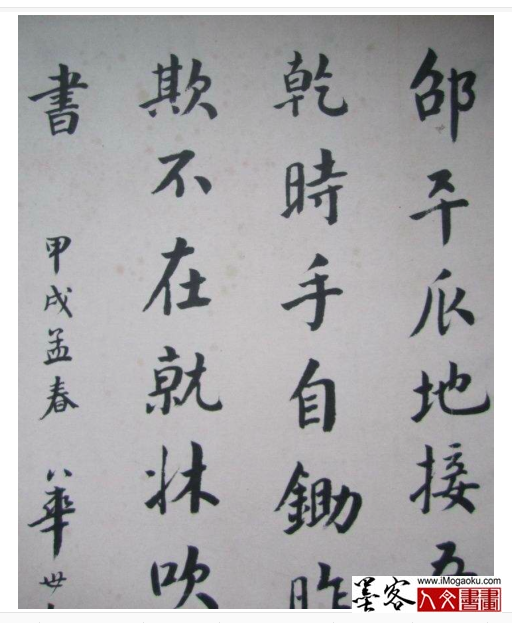 邵平瓜地接
乾時手自鋤昨
欺不在就牀吹
書 甲戌孟春 八華
墨客 www.iMogaoku.com
人文書畫